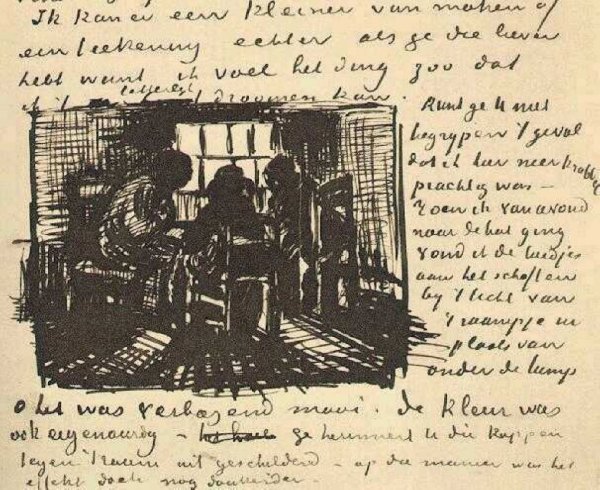 Ik kan er een kleiner van maken of
een teekening echter als ge die liever
hebt want ik voel het ding zoo dat
ik 't letterlijk droomen kan.
Kunt ge U niet
begrypen 't geval
dat ik hier neerkrabbel
prachtig was –
Toen ik van avond
naar de hut ging
vond ik de luidjes
aan het schoften
by 't licht van
't raampje in
plaats van
onder de lamp
O het was verbazend mooi. de kleur was
ook eigenaardig – ge herinnert U die koppen
tegen 't raam uit geschilderd – op die manier was het
effekt doch nog donkerder.